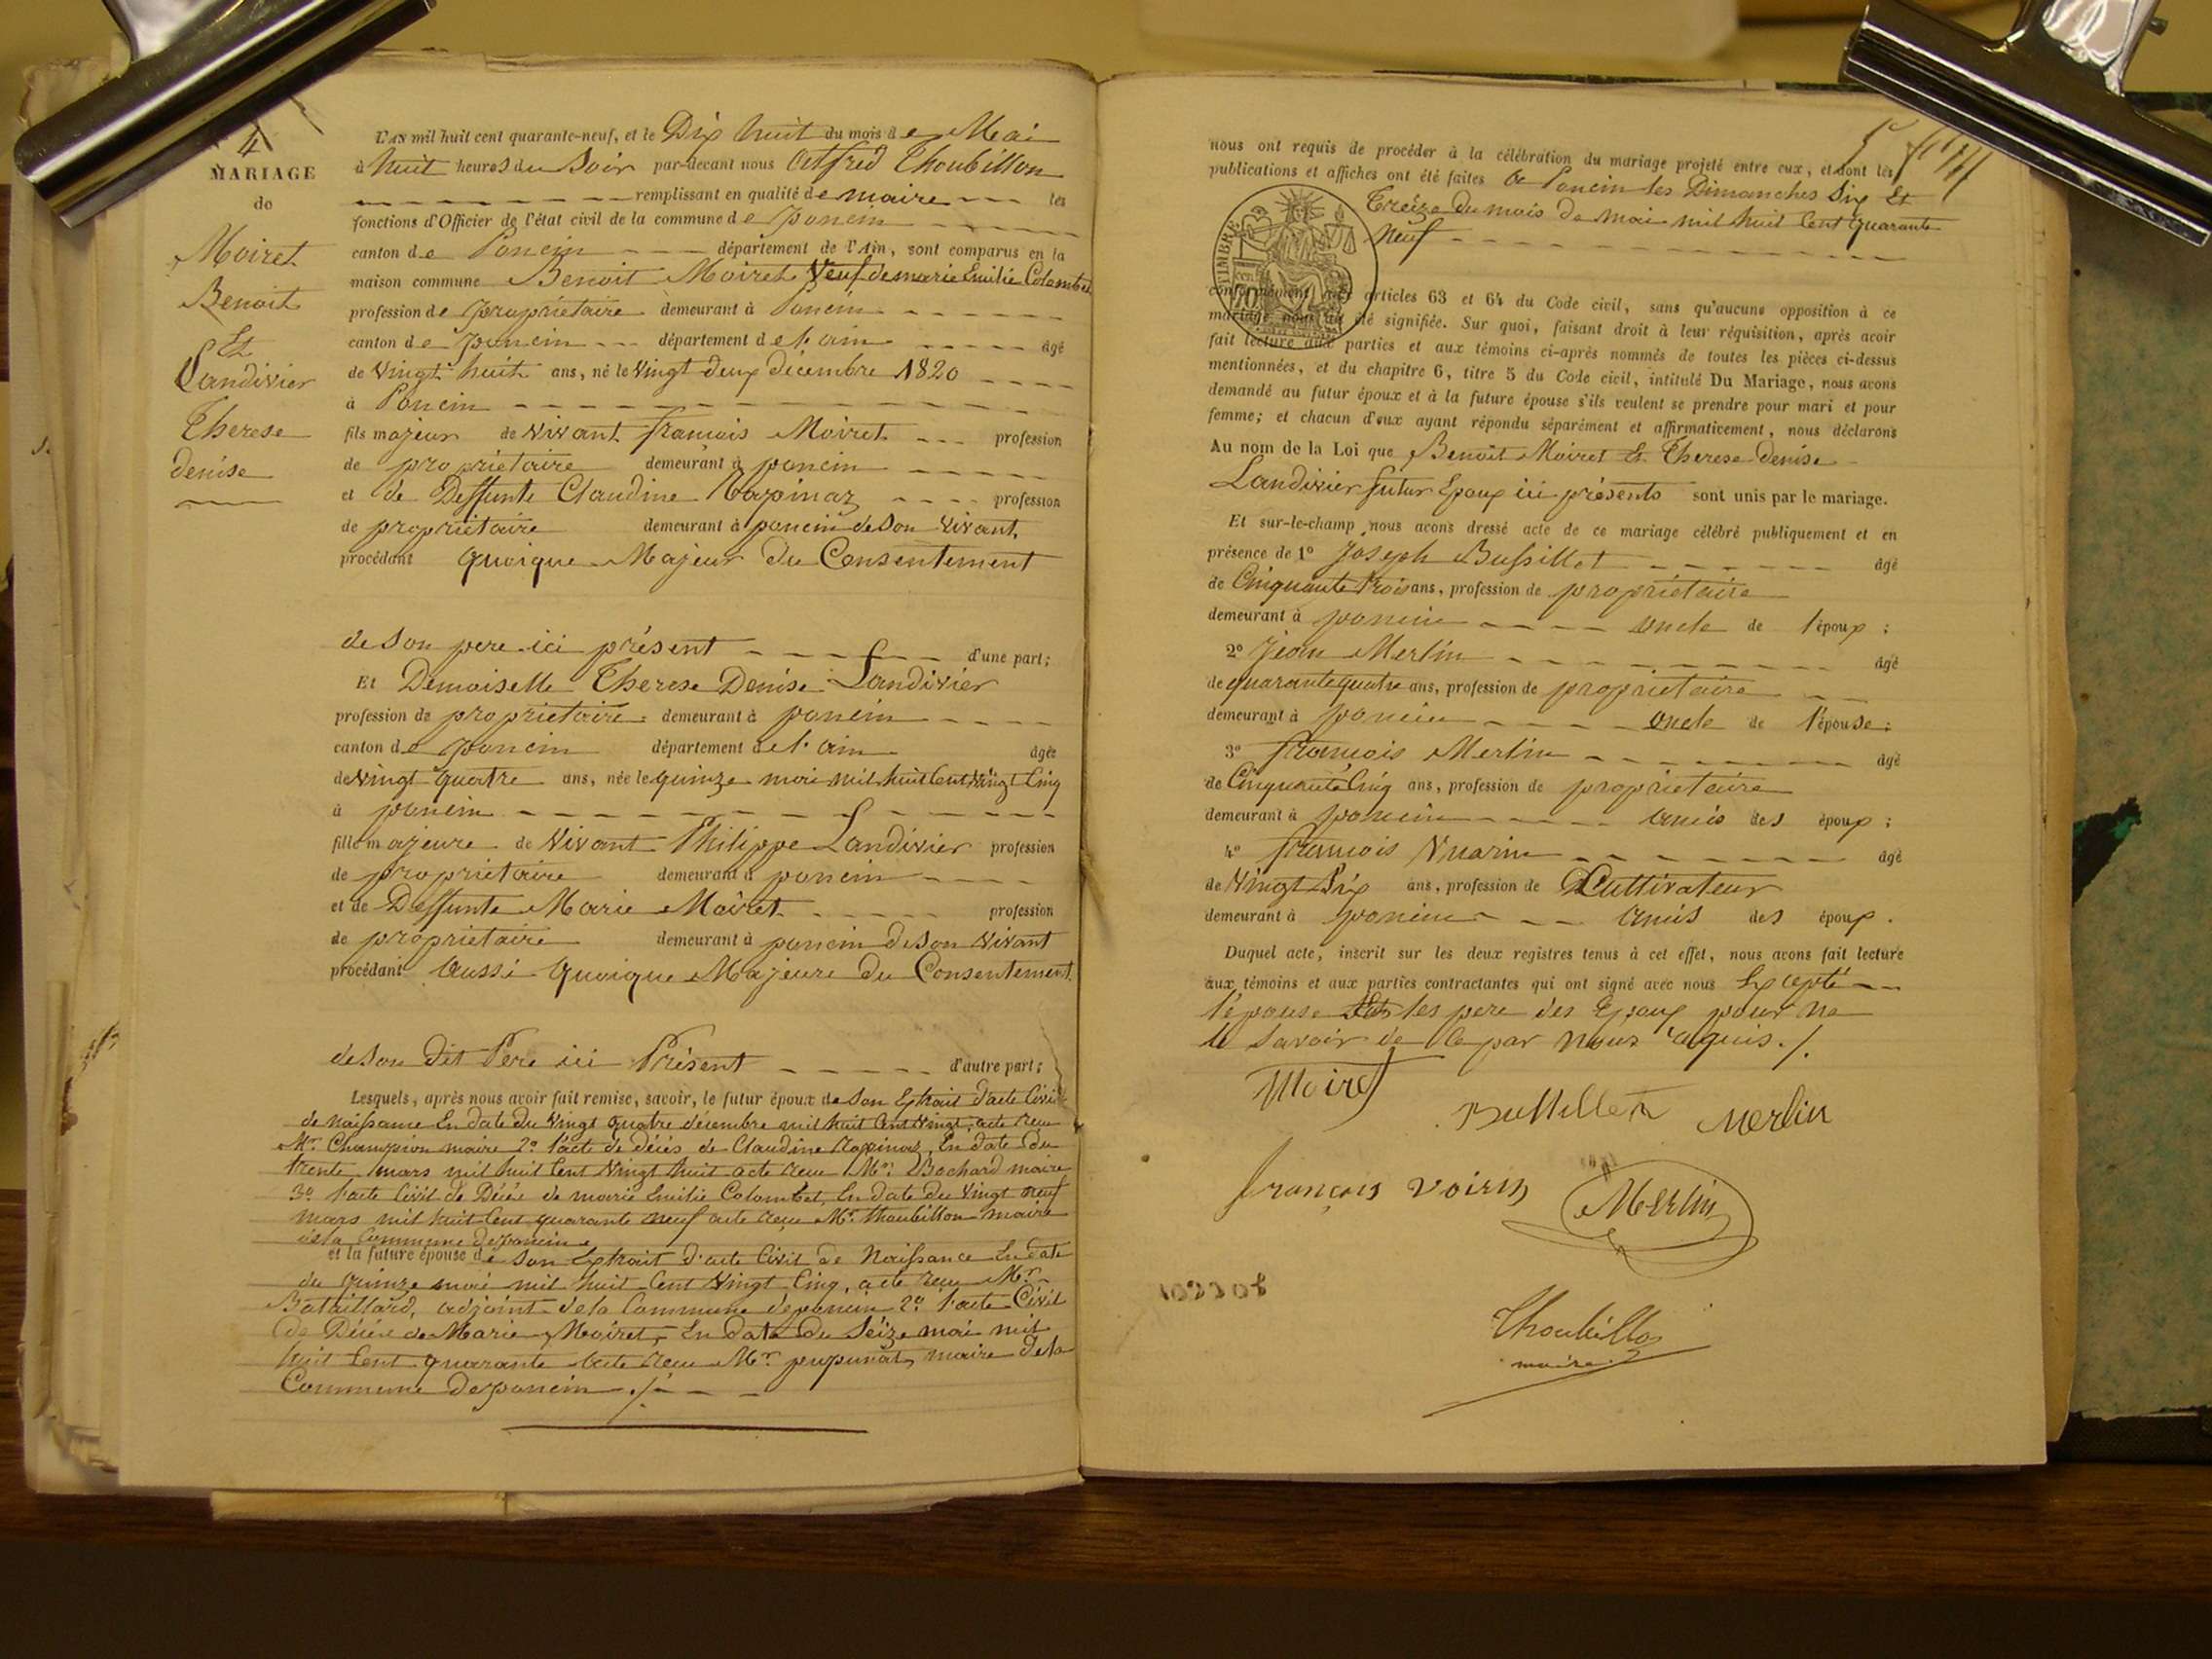 4
MARIAGE
de
Moiret
Benoit
Et
Landivier
Therese
denise
L'AN mil huit cent quarante-neuf, et le Dix huit du mois de Mai
à huit heures du Soir par-devant nous Alfred Thoubillon
remplissant en qualité de maire les
fonctions d'Officier de l'état civil de la commune de poncin
canton de Poncin département de l'Ain, sont comparus en la
maison commune Benoit Moiret Veuf de marie Emilie Colombet
profession de propriétaire demeurant à Poncin
canton de poncin département de l'ain âgé
de Vingt huit ans, né le Vingt deux décembre 1820
à Poncin
fils majeur de Vivant françois Moiret profession
de propriétaire demeurant à poncin
et de Deffunte Claudine Rapinaz profession
de propriétaire demeurant à poncin de son Vivant,
procédant quoique Majeur du Consentement
de son pere ici présent d'une part;
Et Demoiselle Therese Denise Landivier
profession de propriétaire demeurant à poncin
canton de poncin département de l'ain âgée
de Vingt quatre ans, née le quinze mai mil huit Cent Vingt Cinq
à poncin
fille majeure de Vivant Philippe Landivier profession
de propriétaire demeurant à poncin
et de Deffunte Marie Moiret profession
de propriétaire demeurant à poncin de son Vivant
procédant Aussi quoique Majeure du Consentement
de son dit Pere ici Présent d'autre part;
Lesquels, après nous avoir fait remise, savoir, le futur époux de son Extrait d'acte Civil
de naissance En date du Vingt quatre décembre mil huit Cent Vingt, acte reçu
Mr. Champion maire 2º l'acte de décès de Claudine Rapinaz, En date du
trente mars mil huit Cent Vingt huit acte reçu Mr. Bochard maire
3º l'acte Civil de Décés de marie Emilie Colombet, En date du Vingt neuf
mars mil huit Cent quarante neuf acte reçu Mr. thoubillon maire
de la Commune de poncin
et la future épouse de son Extrait d'acte Civil de Naissance En date
du quinze mai mil huit Cent Vingt Cinq, acte reçu Mr.
Bataillard, adjoint de la Commune de poncin 2º l'acte Civil
de Décés de Marie Moiret, En date du Seize mai mil
huit Cent quarante acte reçu Mr. pupunat, maire de la
Commune de poncin ./.
nous ont requis de procéder à la célébration du mariage projeté entre eux, et dont les
publications et affiches ont été faites A Poncin les Dimanches Six Et
Treize du mois de mai mil huit Cent quarante
Neuf
TIMBRE
conformément aux articles 63 et 64 du Code civil, sans qu'aucune opposition à ce
mariage nous ait été signifiée. Sur quoi, faisant droit à leur réquisition, après avoir
fait lecture aux parties et aux témoins ci-après nommés de toutes les pièces ci-dessus
mentionnées, et du chapitre 6, titre 5 du Code civil, intitulé Du Mariage, nous avons
demandé au futur époux et à la future épouse s'ils veulent se prendre pour mari et pour
femme; et chacun d'eux ayant répondu séparément et affirmativement, nous déclarons
Au nom de la Loi que Benoit Moiret Et Therese denise
Landivier futur Epoux ici présents sont unis par le mariage.
Et sur-le-champ nous avons dressé acte de ce mariage célébré publiquement et en
présence de 1º Joseph Bussillet âgé
de Cinquante trois ans, profession de propriétaire
demeurant à poncin oncle de l'époux;
2º Jean Merlin âgé
de quarante quatre ans, profession de propriétaire
demeurant à poncin oncle de l'épouse;
3º françois Merlin âgé
de Cinquante Cinq ans, profession de propriétaire
demeurant à poncin amis des époux;
4º françois âgé
de Vingt Six ans, profession de Cultivateur
demeurant à poncin amis des époux.
Duquel acte, inscrit sur les deux registres tenus à cet effet, nous avons fait lecture
aux témoins et aux parties contractantes qui ont signé avec nous Excepté
l'épouse Et les pere des Epoux pour ne
le Savoir de Ce par nous requis. /.
Moiret
Bussillet
Merlin
françois voirin
Merlin
Thoubillon
maire